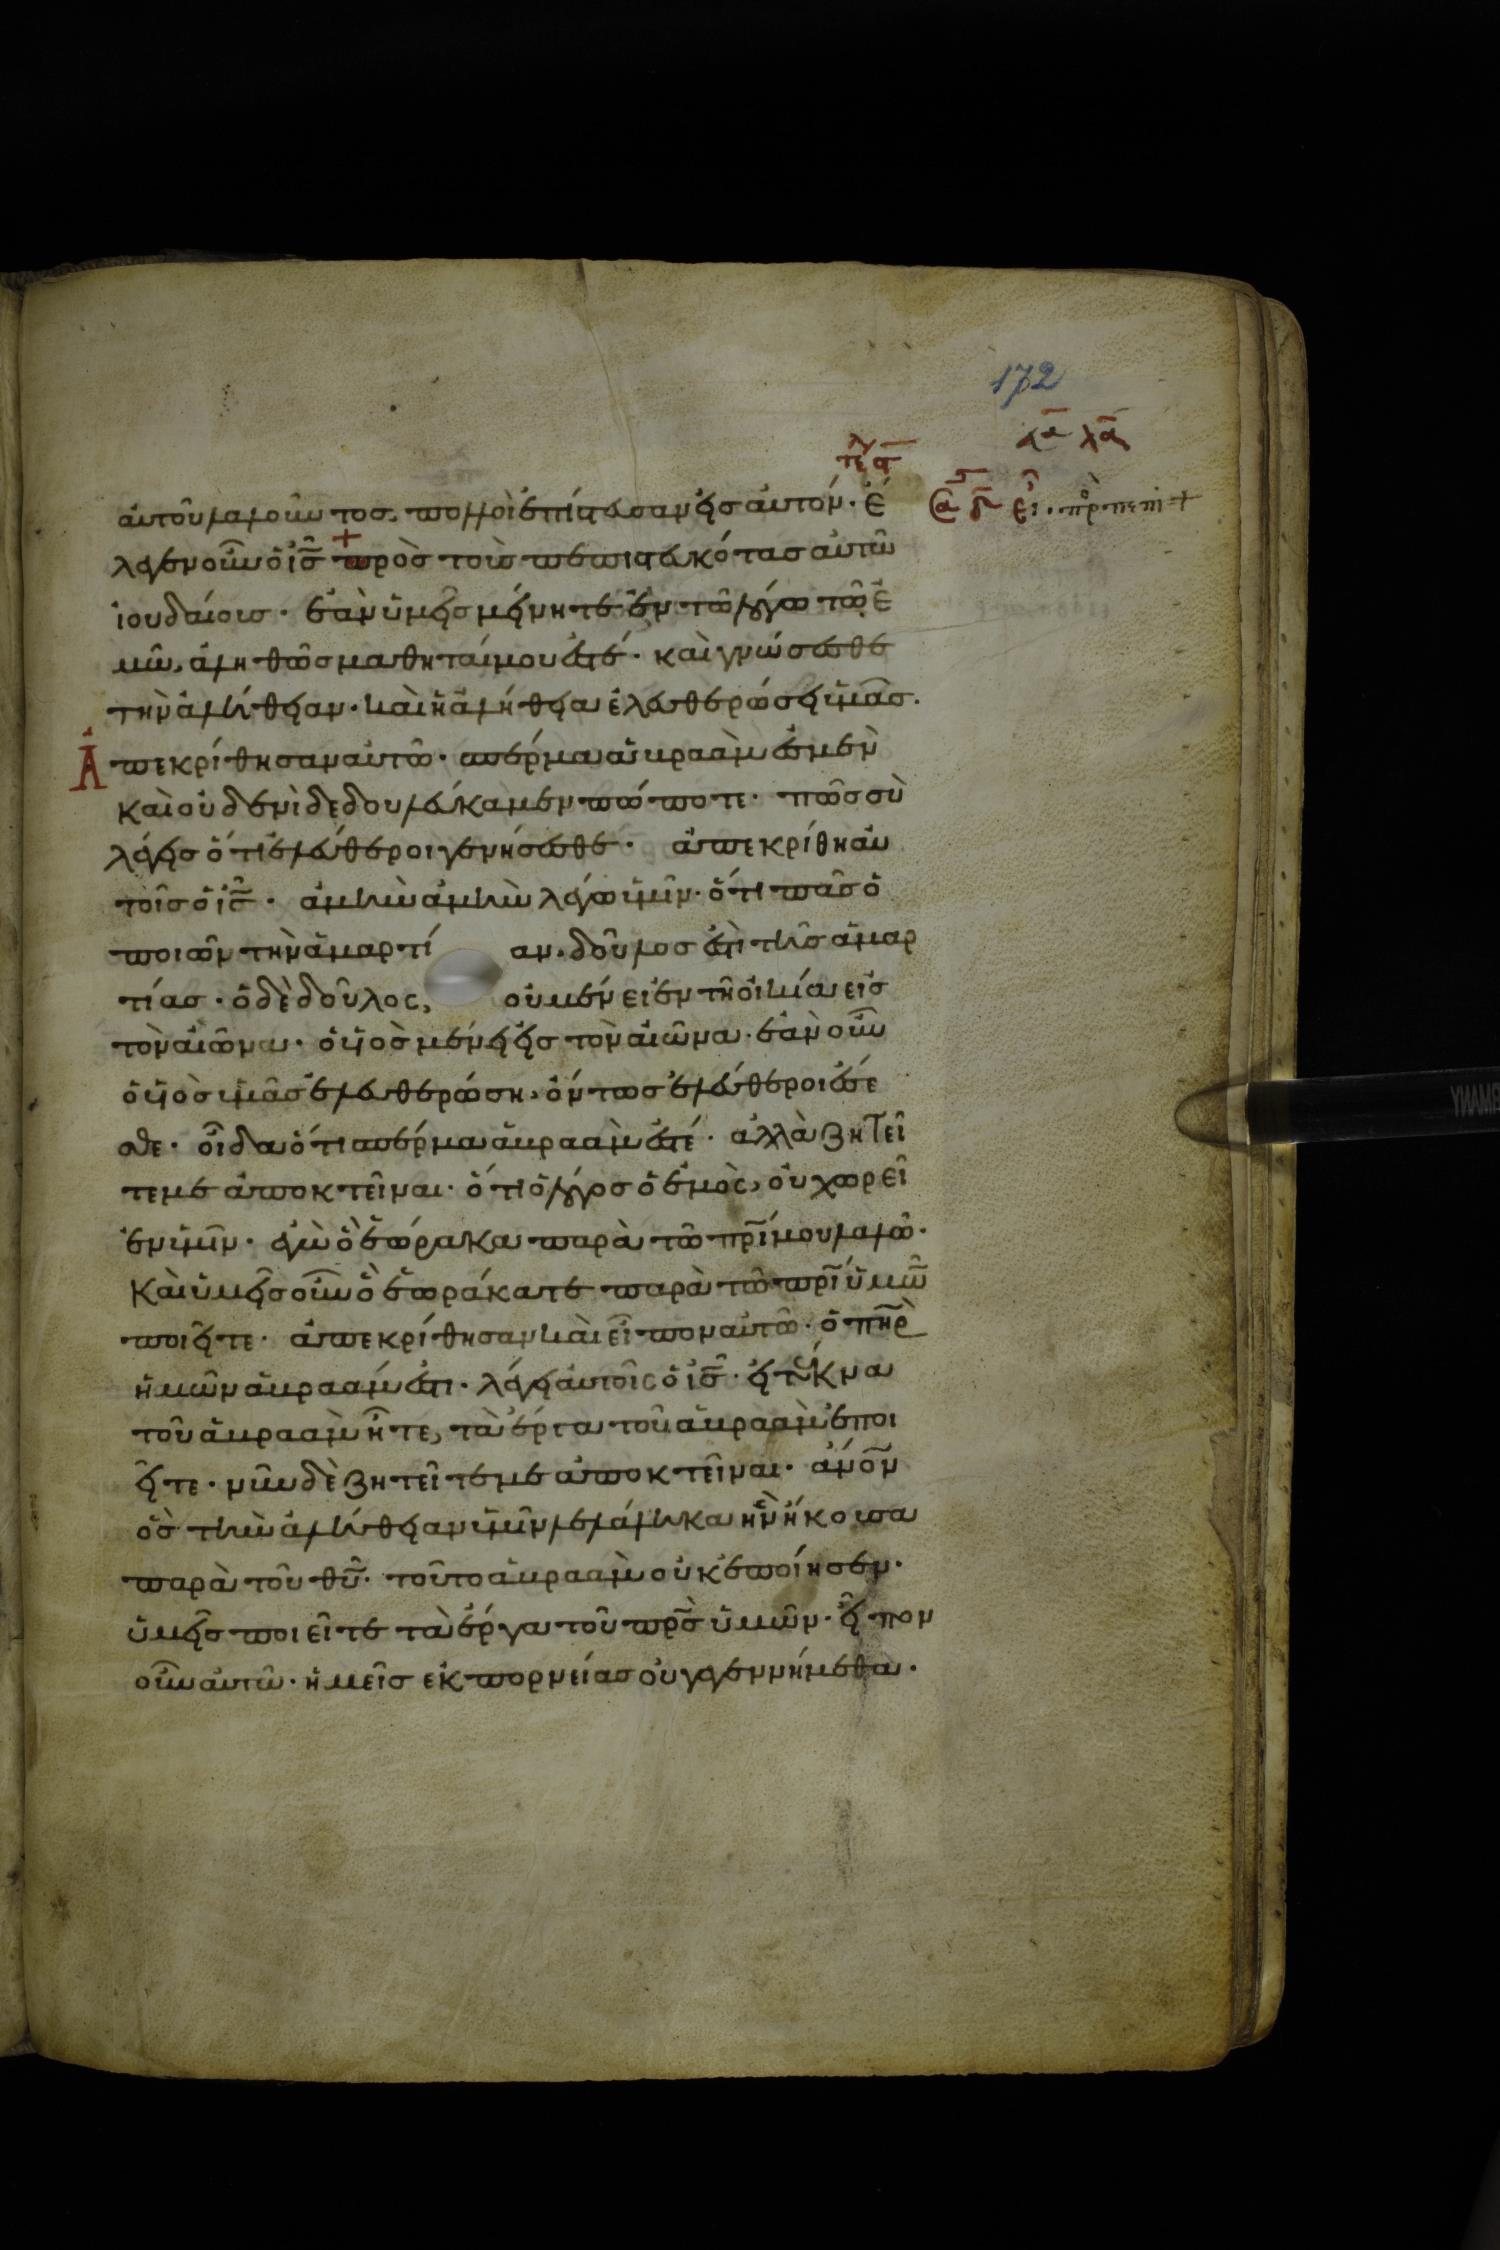 172
αὐτοῦ λαλοῦντος, πολλοὶ ἐπίστευσαν εἰς αὐτόν· ἔ
λεγεν οὖν ὁ ἰς̅ πρὸς τοὺς πεπιστευκότας αὐτῶ
ἰουδαίους· ἐὰν ὑμεῖς μείνητε ἐν τῶ λόγω τῶ ἐ
μῶ, ἀληθῶς μαθηταί μου ἐστέ· καὶ γνώσεσθε
τὴν ἀλήθειαν· καὶ ἡ ἀλήθεια ἐλευθερώσει ὑμᾶς.
Ἀπεκρίθησαν αὐτῶ· σπέρμα ἀβραὰμ ἐσμὲν
καὶ οὐδενὶ δεδουλεύκαμεν πώποτε· πῶς σὺ
λέγεις ὅτι ἐλεύθεροι γενήσεσθε· ἀπεκρίθη αὐ
τοῖς ὁ ἰς̅· ἀμὴν ἀμὴν λέγω ὑμῖν· ὅτι πᾶς ὁ
ποιῶν τὴν ἁμαρτίαν, δοῦλος ἐστὶ τῆς ἁμαρ
τίας· ὁ δὲ δοῦλος, οὐ μένει ἐν τῆ οἰκία εἰς
τὸν αἰῶνα· ὁ υἱὸς μένει εἰς τὸν αἰῶνα· ἐὰν οὖν
ὁ υἱὸς ὑμᾶς ἐλευθερώση, ὄντως ἐλεύθεροι ἔσε
σθε· οἶδα ὅτι σπέρμα ἀβραάμ ἐστέ· ἀλλὰ ζητεῖ
τε με ἀποκτεῖναι· ὅτι ὁ λόγος ὁ ἐμὸς, οὐ χωρεῖ
ἐν ὑμῖν· ἐγὼ ὃ ἑώρακα παρὰ τῶ πρ̅ι μου λαλῶ·
καὶ ὑμεῖς οὖν ὃ ἑωράκατε παρὰ τῶ πρ̅ι ὑμῶν
ποιεῖτε· ἀπεκρίθησαν καὶ εἶπον αὐτῶ· ὁ πη̅ρ
ἡμῶν ἀβραάμ ἐστι· λέγει αὐτοῖς ὁ ἰς̅· εἰ τέκνα
τοῦ ἀβραὰμ ἦτε, τὰ ἔργα τοῦ ἀβραὰμ ἐποι
εῖτε· νῦν δὲ ζητεῖτέ με ἀποκτεῖναι· ἄνο̅ν
ὃς τὴν ἀλήθειαν ὑμῖν λελάληκα ἣν ἤκουσα
παρὰ τοῦ θυ̅· τοῦτο ἀβραὰμ οὐκ ἐποίησεν·
ὑμεῖς ποιεῖτε τὰ ἔργα τοῦ πρ̅ς ὑμῶν· εἶπον
οὖν αὐτῶ· ἡμεῖς ἐκ πορνείας οὐ γεγεννήμεθα·